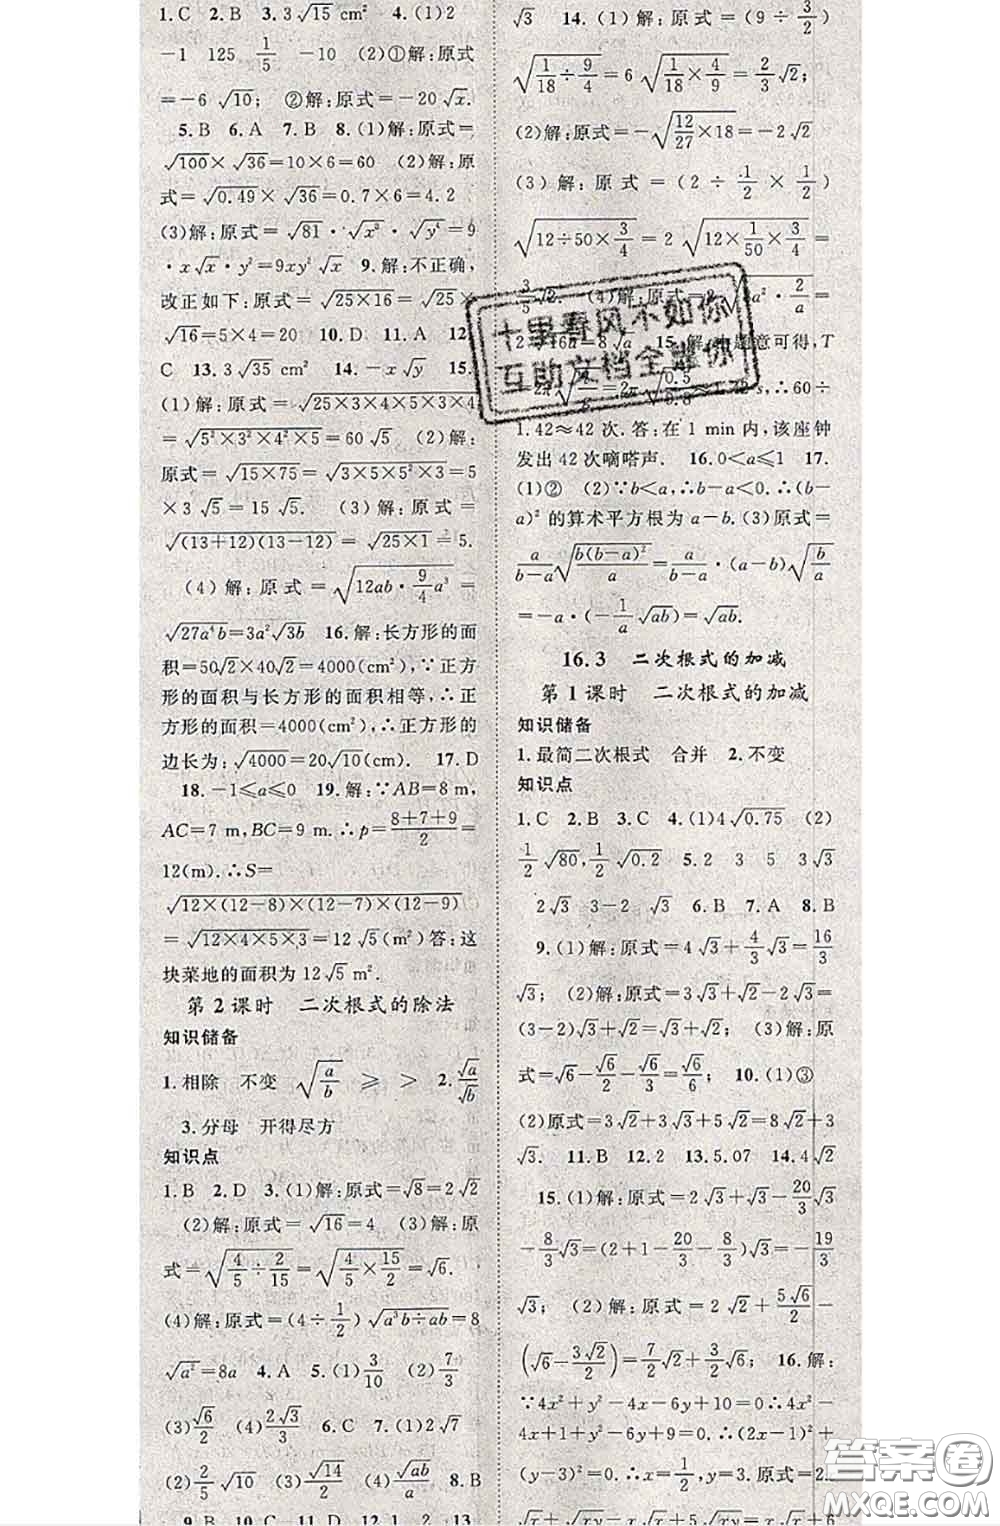 1.C 2.B 3.3√15 cm² 4.(1)2
-1 125 1/5 -10 (2)①解:原式
=-6√10; ②解:原式=-20√x.
5.B 6.A 7.B 8.(1)解:原式=
√100×√36=10×6=60 (2)解:原
式=√0.49×√36=0.7×6=4.2
(3)解:原式=√81·√x³·√y⁴=9
·x√x·y²=9xy²√x 9.解:不正确,
改正如下:原式=√(25×16)=√25×
√16=5×4=20 10.D 11.A 12.
C 13.3√35 cm² 14.-x√y 15.
(1)解:原式=√(25×3×4×5×3×4)
=√(5²×3²×4²×5)=60√5 (2)解:
原式=√(15×75)=√(3×5×5²×3)
×3√5=15√5. (3)解:原式=
√((13+12)(13-12))=√(25×1)=5.
(4)解:原式=√(12ab·9/4a³)=
√(27a⁴b)=3a²√3b 16.解:长方形的面
积=50√2×40√2=4000(cm²),∵正方
形的面积与长方形的面积相等,∴正
方形的面积=4000(cm²),∴正方形的
边长为:√4000=20√10(cm). 17.D
18.-1≤a≤0 19.解:∵AB=8 m,
AC=7 m,BC=9 m.∴p=(8+7+9)/2=
12(m).∴S=
√(12×(12-8)×(12-7)×(12-9))
=√(12×4×5×3)=12√5(m²)答:这
块菜地的面积为12√5 m².
第2课时 二次根式的除法
知识储备
1.相除 不变 √(a/b) ≥ > 2.√a/√b
3.分母 开得尽方
知识点
1.B 2.D 3.(1)解:原式=√8=2√2
(2)解:原式=√16=4 (3)解:原
式=√(4/5÷2/15)=√(4/5×15/2)=√6.
(4)解:原式=(4÷1/2)√(a³b÷ab)=8
√a²=8a 4.A 5.(1)3/10 (2)7/3
(3)√6/2 (4)2√3/3 6.C 7.(1)2√7
(2)2/5√10 (3)√14/2 (4)√ab/a 8.B
9.B 10.C 11.D 12.1 2 13.
√3 14.(1)解:原式=(9÷3/2)
√(1/18÷9/4)=6√(1/18×4/9)=2/3√2;
(2)解:原式=-√(12/27×18)=-2√2
(3)解:原式=(2÷1/2×1/2)
√(12÷50×3/4)=2√(12×1/50×3/4)=
3/5√2. (4)解:原式=2 a²·2/a=
=8√a 15.解:由题意可得,T
=2π =2π√(0.5/9.8)≈1.42 s,∴60÷
1.42≈42次.答:在1 min内,该座钟
发出42次嘀嗒声. 16.0<a≤1 17.
(1)② (2)∵b<a,∴b-a<0.∴(b-
a)²的算术平方根为a-b.(3)原式=
a/(b-a)√(b(b-a)²/a)=a/(b-a)·(a-b)√(b/a)
=-a·(-1/a√ab)=√ab.
16.3 二次根式的加减
第1课时 二次根式的加减
知识储备
1.最简二次根式 合并 2.不变
知识点
1.C 2.B 3.C 4.(1)4√0.75 (2)
1/2√80,1/2√0.2 5.2 3 5 3√3
2√3 3-2 √3 6.B 7.A 8.B
9.(1)解:原式=4√3+4/3√3=16/3
√3; (2)解:原式=3√3+√2-2√3=
(3-2)√3+√2=√3+√2; (3)解:原
式=√6-√6/2-√6/3=√6/6; 10.(1)③
(2)原式=3√2+3√3+5√2=8√2+3
√3. 11.B 12.2 13.5.07 14.4√2
15.(1)解:原式=2√3+√3-20/3√3
-8/3√3=(2+1-20/3-8/3)√3=-19/3
√3; (2)解:原式=2√2+5√6/2-
(√6-3√2/2)=7/2√2+3/2√6; 16.解:
∵4x²+y²-4x-6y+10=0.∴4x²-
4x+1+y²-6y+9=0.∴(2x-1)²+
(y-3)²=0.∴x=1/2,y=3.原式=2
十里春风不如你
互助文档全遇你
答案圈
MXQE.COM